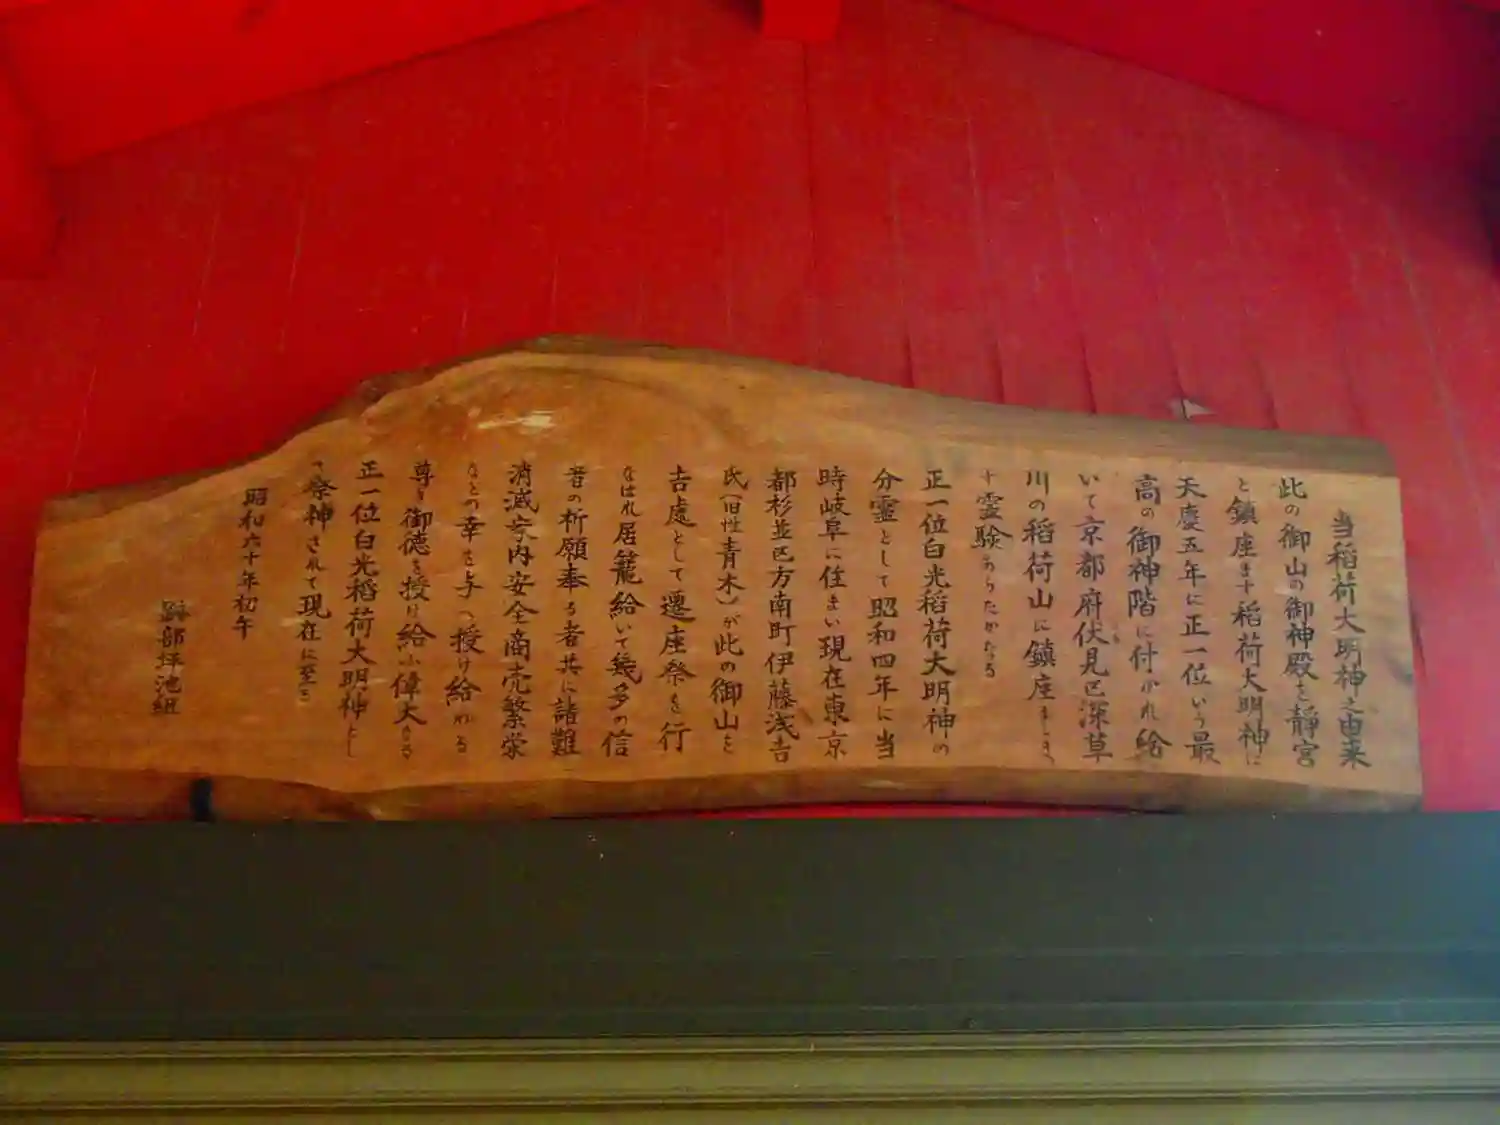 当稲荷大明神之由来
此の御山の御神殿を静宮
と鎮座ます稲荷大明神は
天慶五年に正一位いう最
高の御神階に付かれ給
いて京都府伏見区深草
川の稲荷山に鎮座まします
霊験あらたかなる
正一位白光稲荷大明神の
分霊として昭和四年に当
時岐阜に住まい現在東京
都杉並区方南町伊藤浅吉
氏(旧性青木)が此の御山を
吉處として遷座祭を行
なはれ居籠給いて幾多の信
者の祈願奉る者共に諸難
消滅家内安全商売繁栄
などの幸を与へ授け給わる
尊き御徳を授け給ふ偉大なる
正一位白光稲荷大明神とし
て祭神されて現在に至る
昭和六十年初午
跡部坪池組